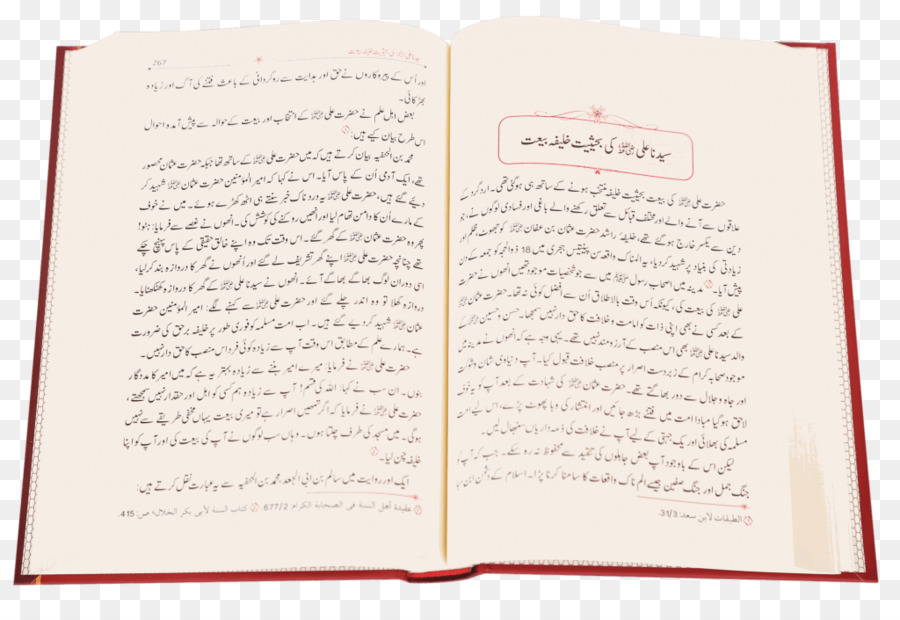 سیدنا علی رضی اللہ عنہ کی بحیثیت خلیفہ بیعت
حضرت علی رضی اللہ عنہ کی بیعت بحیثیت خلیفہ منتخب ہونے کے ساتھ ہی ہو گئی تھی۔ اردگرد کے
علاقوں سے آنے والے اور مختلف قبائل سے تعلق رکھنے والے باغی اور فسادی لوگوں نے، جو
دین سے یکسر خارج ہو گئے تھے، خلیفۂ راشد حضرت عثمان بن عفان رضی اللہ عنہ کو جھوٹ، ظلم اور
زیادتی کی بنیاد پر شہید کر دیا، یہ المناک واقعہ سن پینتیس ہجری میں 18 ذوالحجہ کو جمعہ کے دن
پیش آیا۔ مدینہ میں اصحاب رسول رضی اللہ عنہم میں سے جو شخصیات موجود تھیں انھوں نے حضرت
علی رضی اللہ عنہ کی بیعت کی، کیونکہ اُس وقت بالاطلاق اُن سے افضل کوئی نہ تھا۔ حضرت عثمان رضی اللہ عنہ
کے بعد کسی نے بھی اپنی ذات کو امامت و خلافت کا حق دار نہیں سمجھا۔ حسن و حسین رضی اللہ عنہما کے
والد سیدنا علی رضی اللہ عنہ بھی اس منصب کے آرزو مند نہیں تھے۔ یہی وجہ ہے کہ انھوں نے مدینہ میں
موجود صحابہ کرام کے زبردست اصرار پر منصب خلافت قبول کیا۔ آپ دنیاوی شان و شوکت
اور جاہ و جلال سے دور بھاگتے تھے۔ حضرت عثمان رضی اللہ عنہ کی شہادت کے بعد آپ کو یہ خوف
لاحق ہو گیا مبادا امت میں فتنے بڑھ جائیں اور انتشار کی وبا پھوٹ پڑے، اس لیے امت
مسلمہ کی بھلائی اور یک جہتی کے لیے آپ نے خلافت کی ذمہ داریاں سنبھال لیں۔
لیکن اس کے باوجود آپ بعض جاہلوں کی تنقید سے محفوظ نہ رہ سکے۔ جب کہ آپ کو
جنگ جمل اور جنگ صفین جیسے الم ناک واقعات کا سامنا کرنا پڑا۔ اسلام کے دشمن ابن سبا
الطبقات لابن سعد: 31/3.
267
اور اُس کے پیروکاروں نے حق اور ہدایت سے روگردانی کے باعث فتنے کی آگ اور زیادہ
بھڑکائی۔
بعض اہل علم نے حضرت علی رضی اللہ عنہ کے انتخاب اور بیعت کے حوالہ سے پیش آمدہ احوال
اس طرح بیان کیے ہیں:
محمد بن الحنفیہ بیان کرتے ہیں کہ میں حضرت علی رضی اللہ عنہ کے ساتھ تھا جبکہ حضرت عثمان محصور
تھے، ایک آدمی اُن کے پاس آیا۔ اس نے کہا کہ امیر المؤمنین حضرت عثمان رضی اللہ عنہ شہید کر
دیے گئے ہیں، حضرت علی رضی اللہ عنہ یہ درد ناک خبر سنتے ہی اٹھ کھڑے ہوئے۔ میں نے خوف
کے مارے اُن کا دامن تھام لیا اور انھیں روکنے کی کوشش کی۔ انھوں نے غصے سے فرمایا: ہٹو!
پھر وہ حضرت عثمان رضی اللہ عنہ کے گھر گئے۔ اس وقت تک وہ اپنے خالق حقیقی کے پاس پہنچ چکے
تھے چنانچہ حضرت علی رضی اللہ عنہ اپنے گھر تشریف لے گئے اور اُنھوں نے گھر کا دروازہ بند کر لیا،
اسی دوران لوگ بھاگے بھاگے آئے۔ انھوں نے سیدنا علی رضی اللہ عنہ کے گھر کا دروازہ کھٹکھٹایا۔
دروازہ کھلا تو وہ اندر چلے گئے اور حضرت علی رضی اللہ عنہ سے کہنے لگے: امیر المؤمنین حضرت
عثمان رضی اللہ عنہ شہید کر دیے گئے ہیں۔ اب امت مسلمہ کو فوری طور پر خلیفہ برحق کی ضرورت
ہے۔ ہمارے علم کے مطابق اس وقت آپ سے زیادہ کوئی فرد اس منصب کا حق دار نہیں۔
حضرت علی رضی اللہ عنہ نے فرمایا: میرے امیر بننے سے زیادہ بہتر یہ ہے کہ میں امیر کا مددگار
بنوں۔ ان سب نے کہا: اللہ کی قسم! آپ سے زیادہ ہم کسی کو اہل اور حقدار نہیں سمجھتے،
حضرت علی رضی اللہ عنہ نے فرمایا کہ اگر تمھیں اصرار ہے تو میری بیعت یہاں مخفی طریقے سے نہیں
ہوگی۔ میں مسجد کی طرف چلتا ہوں۔ وہاں سب لوگوں نے آپ کی بیعت کی اور آپ کو اپنا
خلیفہ چن لیا۔
ایک اور روایت میں سالم بن ابی الجعد، محمد بن الحنفیہ سے یہ عبارت نقل کرتے ہیں:
عقيدة أهل السنة في الصحابة الكرام: 677/2. كتاب السنة لأبي بكر الخلال، ص: 415.